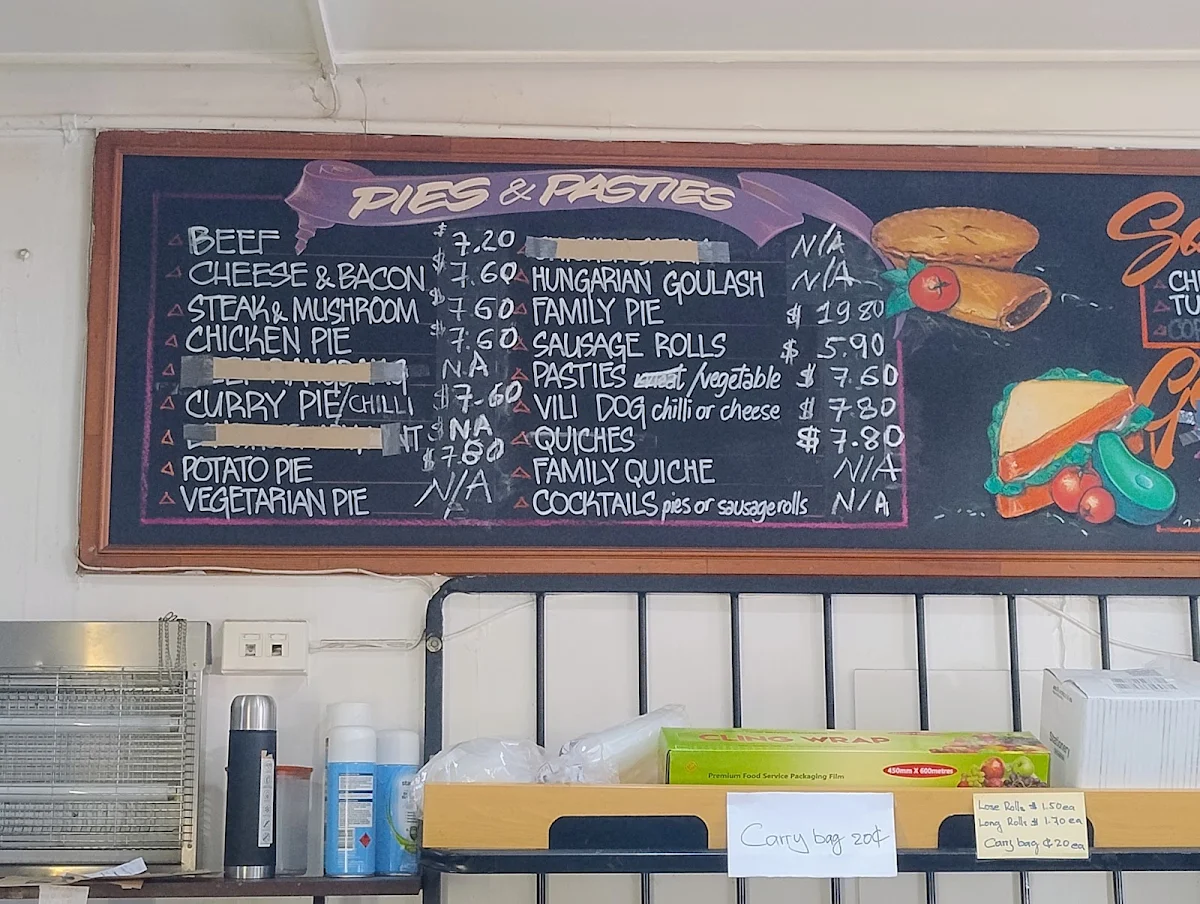 PIES & PASTIES
BEEF $ 7.20
CHEESE & BACON $ 7.60
STEAK & MUSHROOM $ 7.60
CHICKEN PIE $ 7.60
N.A
CURRY PIE/CHILLI $ 7.60
T $ NA
POTATO PIE $ 7.60
VEGETARIAN PIE N/A
N/A
HUNGARIAN GOULASH N/A
FAMILY PIE $ 19.80
SAUSAGE ROLLS $ 5.90
PASTIES /vegetable $ 7.60
VILI DOG chilli or cheese $ 7.80
QUICHES $ 7.80
FAMILY QUICHE N/A
COCKTAILS pies or sausage rolls N/A
CH
TU
CLING WRAP
Premium Food Service Packaging Film
450mm X 600metres
Carry bag 20¢
Lose Rolls $ 1.50 ea
Long Rolls $ 1.70 ea
Carry bag ¢ 20 ea